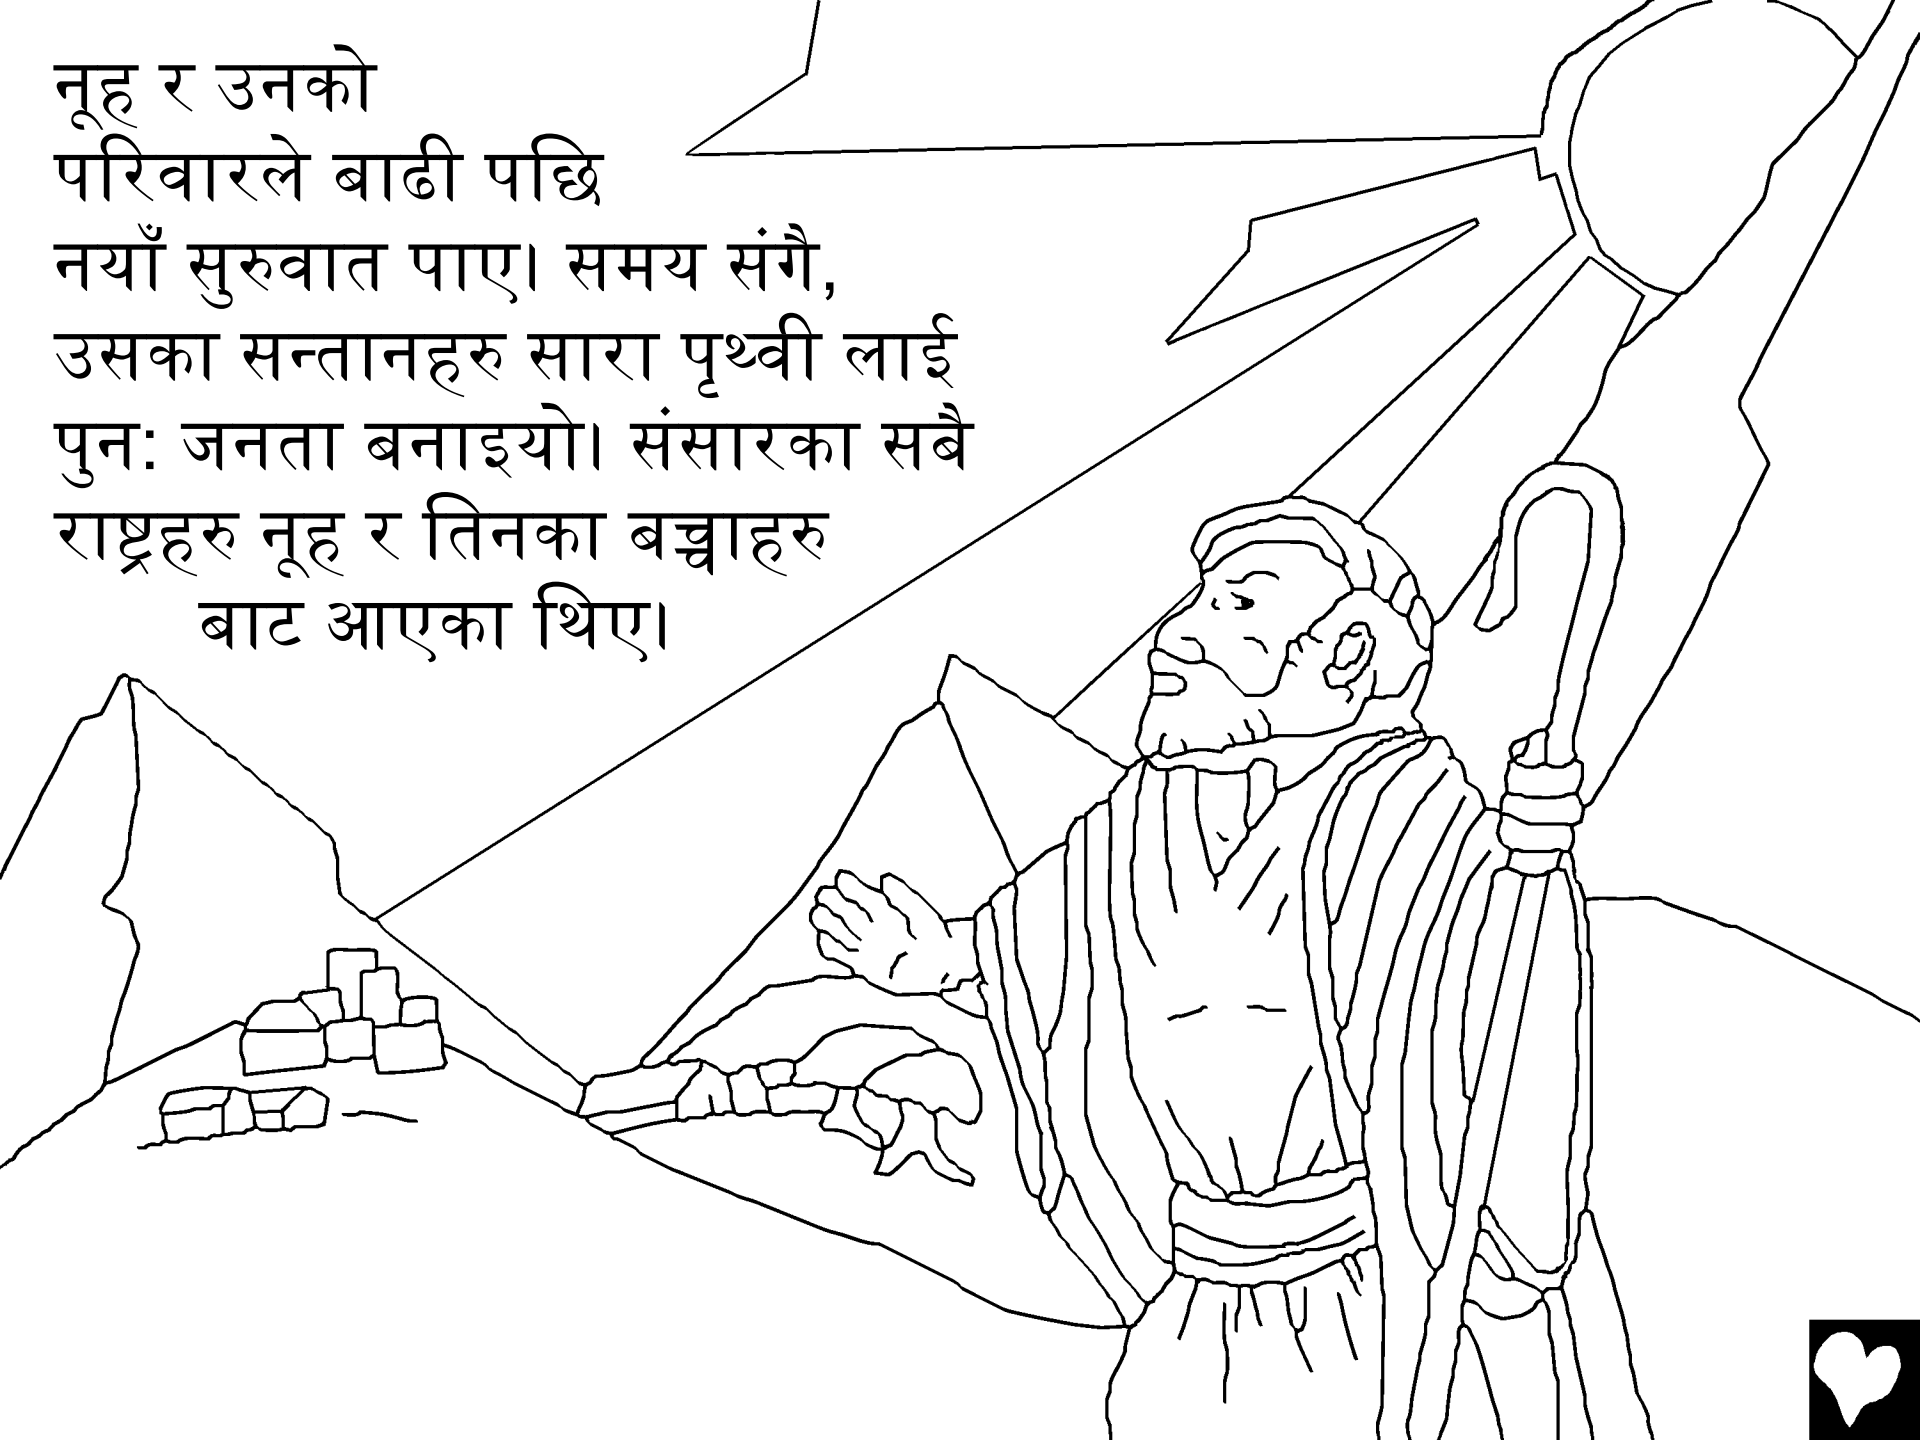 नूह र उनको
परिवारले बाढी पछि
नयाँ सुरुवात पाए। समय संगै,
उसका सन्तानहरु सारा पृथ्वी लाई
पुन: जनता बनाइयो। संसारका सबै
राष्ट्रहरु नूह र तिनका बच्चाहरु
बाट आएका थिए।